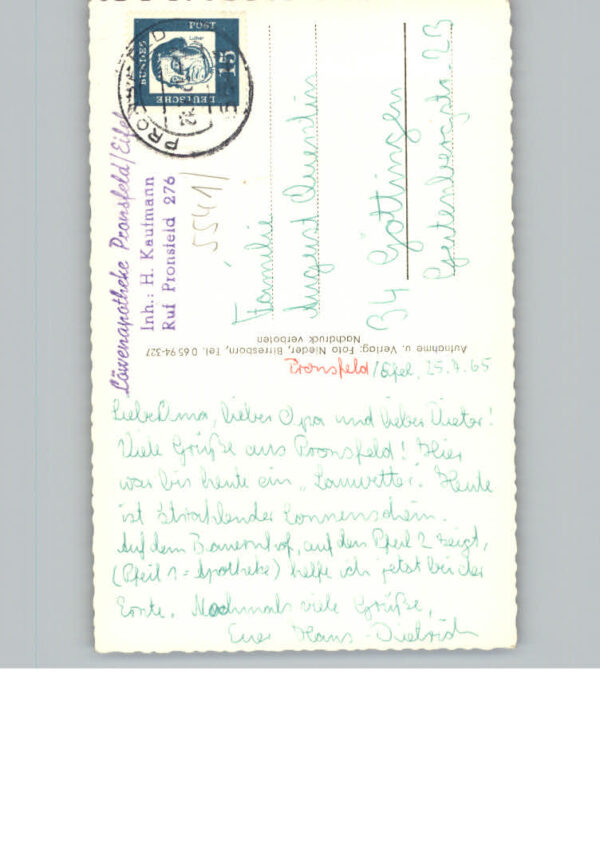 DEUTSCHE
BUNDES
POST
15
Löwenapotheke Pronsfeld/Eifel
Inh.: H. Kaufmann
Ruf Pronsfeld 276
5541/
Familie
August Quentin
34 Göttingen
23
Aufnahme u. Verlag: Foto Nieder, Birresborn, Tel. 0 65 94-327
Nachdruck verboten
Pronsfeld/Eifel, 25.7.65
Liebe Oma, lieber Opa und lieber Dieter!
Viele Grüße aus Pronsfeld! Hier
war bis heute ein „Sauwetter". Heute
ist strahlender Sonnenschein.
Auf dem Bauernhof, auf den Pfeil 2 zeigt,
(Pfeil 1 = Apotheke) helfe ich jetzt bei der
Ernte. Nochmals viele Grüße,
Euer Hans-Dietrich